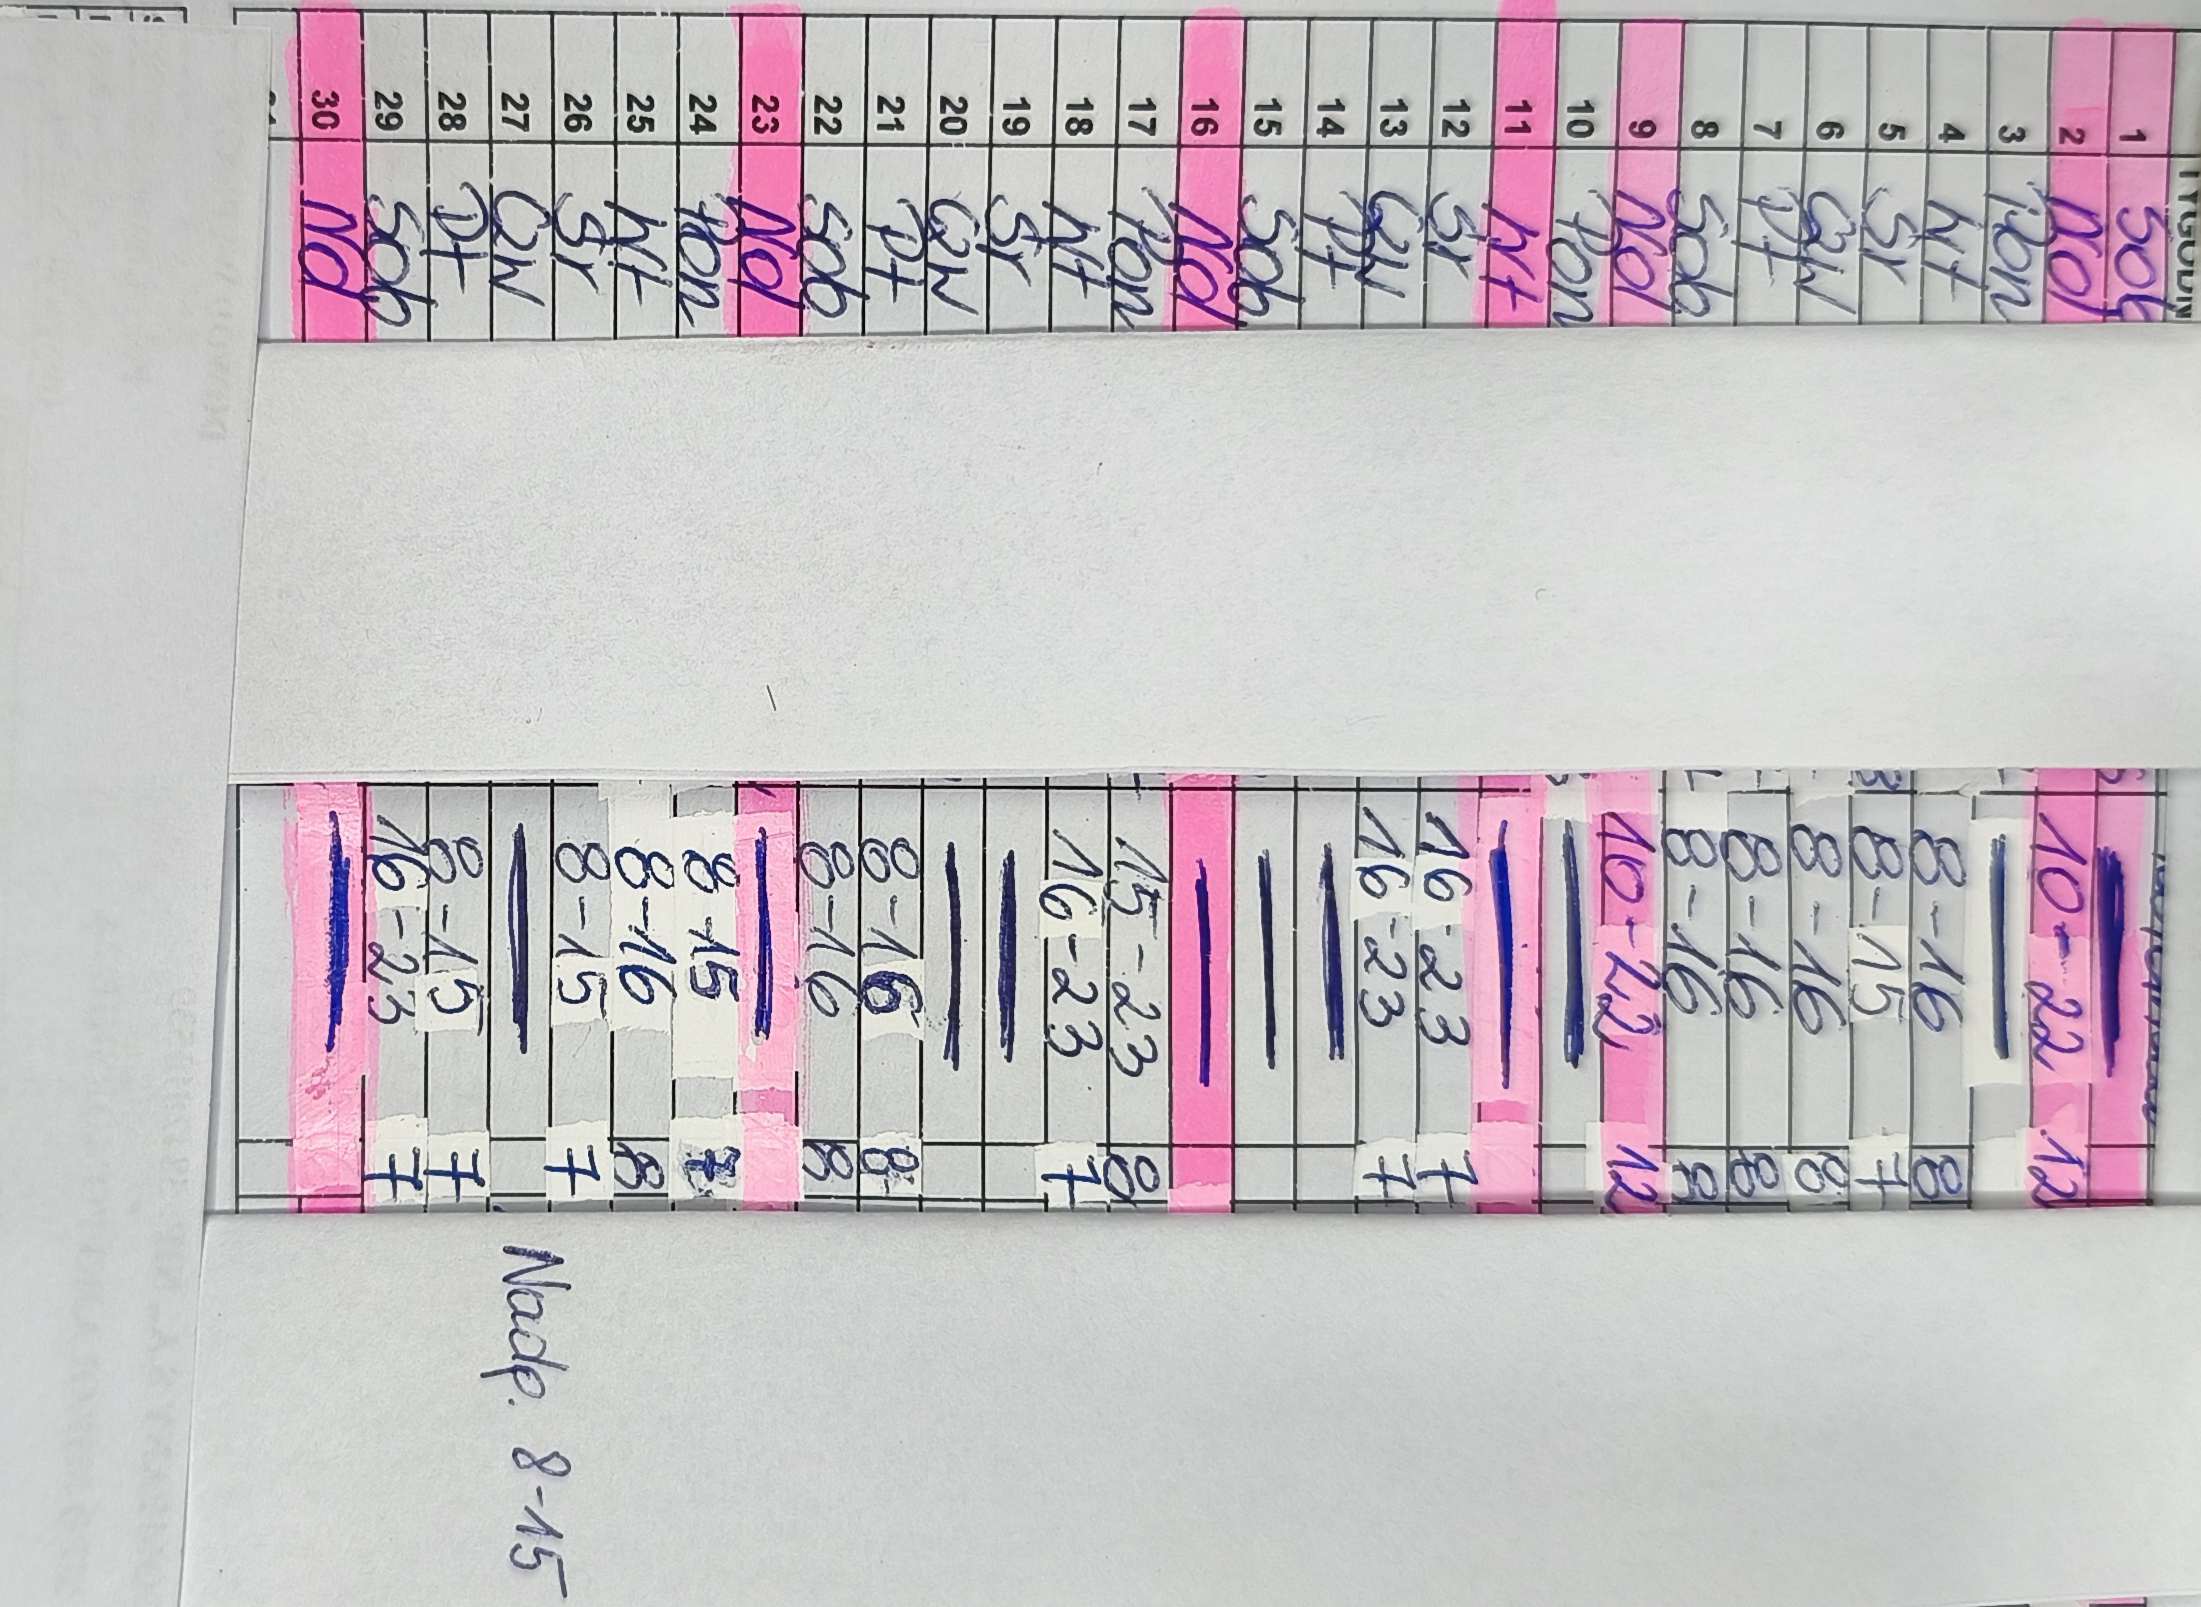 TYGODN
1 Sob
2 Nd 10-22 12
3 Pon
4 Wt 8-16 8
5 Śr 8-15 7
6 Czw 8-16 8
7 Pt 8-16 8
8 Sob 8-16 8
9 Nd 10-22 12
10 Pon
11 Wt
12 Śr 16-23 7
13 Czw 16-23 7
14 Pt
15 Sob
16 Nd
17 Pon 15-23 8
18 Wt 16-23 7
19 Śr
20 Czw
21 Pt 8-16 8
22 Sob 8-16 8
23 Nd
24 Pon 8-15 7
25 Wt 8-16 8
26 Śr 8-15 7
27 Czw Nadp. 8-15
28 Pt 8-15 7
29 Sob 16-23 7
30 Nd